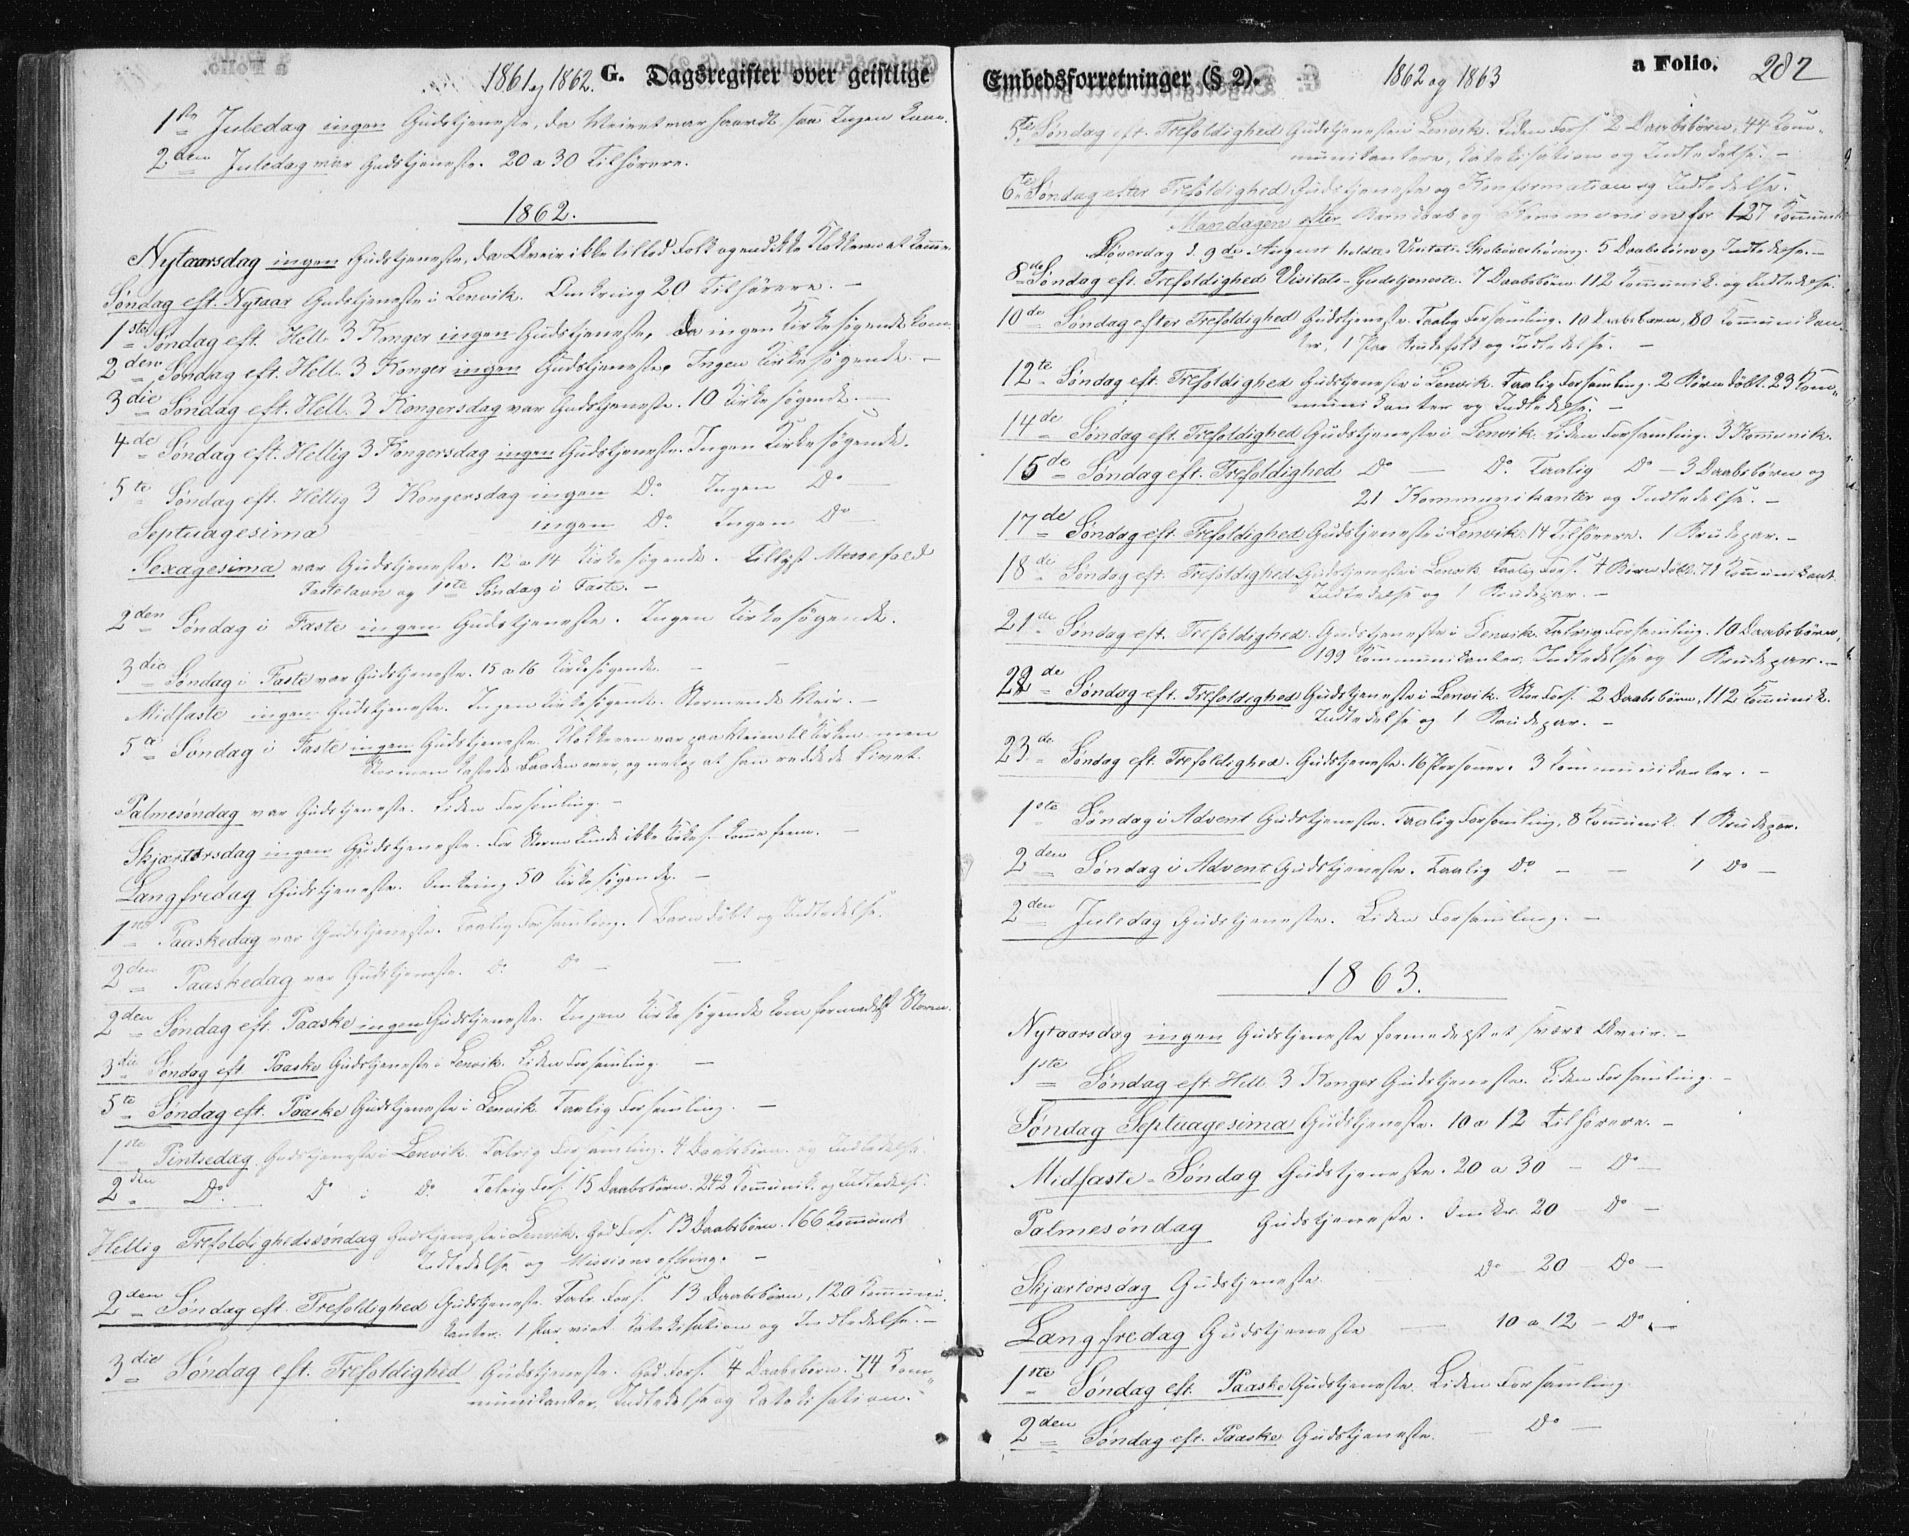 1861 og 1862. G. Dagsregister over geistlige
1ste Juledag ingen Gudstjeneste, da Veiret var haardt, saa Ingen kom.
2den Juledag var Gudstjeneste. 20 a 30 Tilhörere.
1862.
Nytaarsdag ingen Gudstjeneste, da Uveir ikke tillod Folk og end ikke Klokkeren at komme.
Søndag eft. Nytaar Gudstjeneste i Lenvik. Omkring 20 Tilhörere. –
1ste Søndag eft. Hell. 3 Konger ingen Gudstjeneste, da ingen Kirkesögende kom.
2den Søndag eft. Hell. 3 Konger ingen Gudstjeneste. Ingen Kirkesögende. –
3die Søndag eft. Hell. 3 Kongersdag var Gudstjeneste. 10 Kirkesögende. –
4de Søndag eft. Hellig 3 Kongersdag ingen Gudstjeneste. Ingen Kirkesögende.
5te Søndag eft. Hellig 3 Kongersdag ingen Do. Ingen Do –
Septuagesima ingen Do. Ingen Do –
Sexagesima var Gudstjeneste. 12 a 14 Kirkesögende. Tillyst Messefald
Fastelavn og 1ste Søndag i Faste. –
2den Søndag i Faste ingen Gudstjeneste. Ingen Kirkesögende.
3die Søndag i Faste var Gudstjeneste. 15 a 16 Kirkesögende. –
Midfaste ingen Gudstjeneste. Ingen Kirkesögende. Stormende Veir. –
5te Søndag i Faste ingen Gudstjeneste. Klokkeren var paa Veien til Kirken men
Stormen kastede Baaden over, og netop at han reddede Livet.
Palmesøndag var Gudstjeneste. Liden Forsamling. –
Skjærtorsdag ingen Gudstjeneste. For Storm kunde ikke Kirkes. komme frem. –
Langfredag Gudstjeneste. Omkring 50 Kirkesögende. –
1ste Paaskedag var Gudstjeneste. Taalig Forsamling. 1 Barn döbt og Indledelse.
2den Paaskedag var Gudstjeneste. Do Do –
2den Søndag eft. Paaske ingen Gudstjeneste. Ingen Kirkesögende kom formedelst Storm.
3die Søndag eft. Paaske Gudstjeneste i Lenvik. Liden Forsamling. –
5te Søndag eft. Paaske Gudstjeneste i Lenvik. Taalig Forsamling. –
1ste Pintsedag Gudstjeneste i Lenvik. Talrig Forsamling. 4 Daabsbörn og Indledelse.
2den Do. Do i Do. Talrig Fors. 15 Daabsbörn. 242 Kommunik. og Indledelse.
Hellig Trefoldighedssøndag Gudstjeneste i Lenvik. God Fors. 13 Daabsbörn. 166 Kommunik
Indledelse og Missionsoffring. –
2den Søndag eft. Trefoldighed Gudstjeneste. Talr. Fors. 13 Daabsbörn, 120 Kommuni-
kanter. 1 Par viet. Katekisation og Indledelse. –
3die Søndag eft. Trefoldighed Gudstjeneste. God Fors. 4 Daabsbörn. 74 Kom-
munikanter. Indledelse og Katekisation.
Embedsforretninger (§ 2). 1862 og 1863 a Folio. 282
5te Søndag eft. Trefoldighed Gudstjeneste i Lenvik. Liden Fors. 2 Daabsbörn, 44 Kom-
munikantere, Katekisation og Indledelse. –
6te Søndag efter Trefoldighed Gudstjeneste og Konfirmation og Indledelse.
Mandagen efter Barndaab og Kommunion for 127 Kommunik
Löverdag d. 9de August holdt Visitats-Skoleoverhöring. 5 Daabsbörn og Indledelse. –
8de Søndag eft. Trefoldighed Visitats-Gudstjeneste. 7 Daabsbörn 112 Kommunik. og Indledelse.
10de Søndag efter Trefoldighed Gudstjeneste. Taalig Forsamling. 10 Daabsbörn, 80 Kommunikan-
ter, 1 Par Brudefolk og Indledelse. –
12te Søndag eft. Trefoldighed Gudstjeneste i Lenvik. Taalig Forsamling. 2 Börn döbt. 23 Kom-
munikanter og Indledelse. –
14de Søndag eft. Trefoldighed Gudstjeneste i Lenvik. Liden Forsamling. 3 Kommunik.
15de Søndag eft. Trefoldighed Do – Do. Taalig Do – 3 Daabsbörn og
21 Kommunikanter og Indledelse. –
17de Søndag eft. Trefoldighed Gudstjeneste i Lenvik. 14 Tilhörere. 1 Brudepar. –
18de Søndag eft. Trefoldighed Gudstjeneste i Lenvik. Taalig Fors. 4 Börn döbt. 71 Kommunikant.
Indledelse og 1 Brudepar. –
21de Søndag eft. Trefoldighed. Gudstjeneste i Lenvik. Talrig Forsamling. 10 Daabsbörn,
199 Kommunikanter. Indledelse og 1 Brudepar. –
22de Søndag eft. Trefoldighed Gudstjeneste i Lenvik. Stor Fors. 2 Daabsbörn, 112 Kommunik.
Indledelse og 1 Brudepar. –
23de Søndag eft. Trefoldighed. Gudstjeneste. 16 Personer. 3 Kommunikanter. –
1ste Søndag i Advent Gudstjeneste. Taalig Forsamling. 8 Kommunik. 1 Brudepar.
2den Søndag i Advent Gudstjeneste. Taalig Do. – – 1 Do –
2den Juledag Gudstjeneste. Liden Forsamling. –
1863.
Nytaarsdag ingen Gudstjeneste formedelst et svært Uveir. –
1ste Søndag eft. Hell. 3 Konger Gudstjeneste. Liden Forsamling. –
Søndag Septuagesima Gudstjeneste. 10 a 12 Tilhörere. –
Midfaste-Søndag Gudstjeneste. 20 a 30 – Do –
Palmesøndag Gudstjeneste. Omkr. 20 – Do –
Skjærtorsdag Gudstjeneste. Do – 20 – Do –
Langfredag Gudstjeneste – 10 a 12 – Do. –
1ste Søndag eft. Paaske Gudstjeneste. Liden Forsamling.
2den Søndag eft. Paaske Gudstjeneste. – Do –